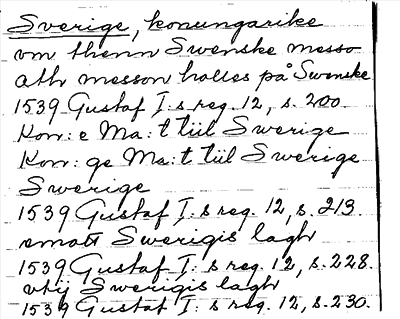 Sverige, konungarike
om thenn Swenske messo
ath messon halles på Swenske
1539 Gustaf I:s reg. 12, s. 200.
Kon: e Ma:t tiil Swerige
Kon: ge Ma:t tiil Swerige
Swerige
1539 Gustaf I:s reg. 12, s. 213.
emott Swerigis lagh
1539 Gustaf I:s reg. 12, s. 228.
vtij Swerigis lagh
1539 Gustaf I:s reg. 12, s. 230.